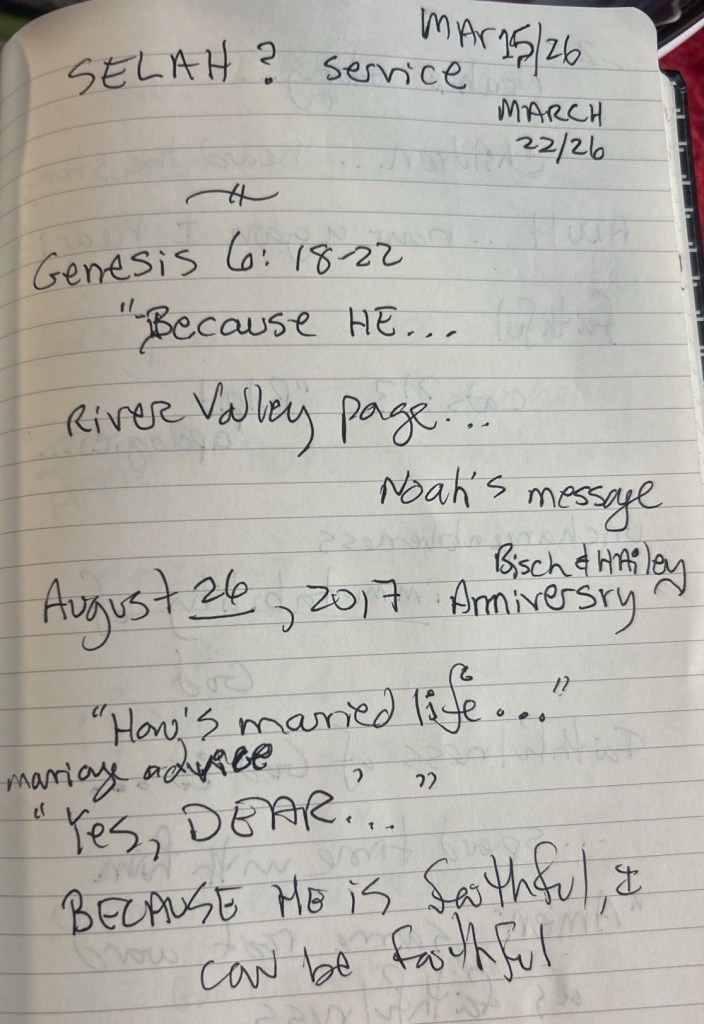 MAr 15/26
SELAH? service
MARCH
22/26
Genesis 6: 18-22
"Because HE...
RIVER Valley page...
Noah's message
Bisch & HAiley
August 26, 2017 Anniversry
"How's married life..."
marriage advice
"Yes, DEAR..."
BECAUSE HE is faithful, I
can be faithful